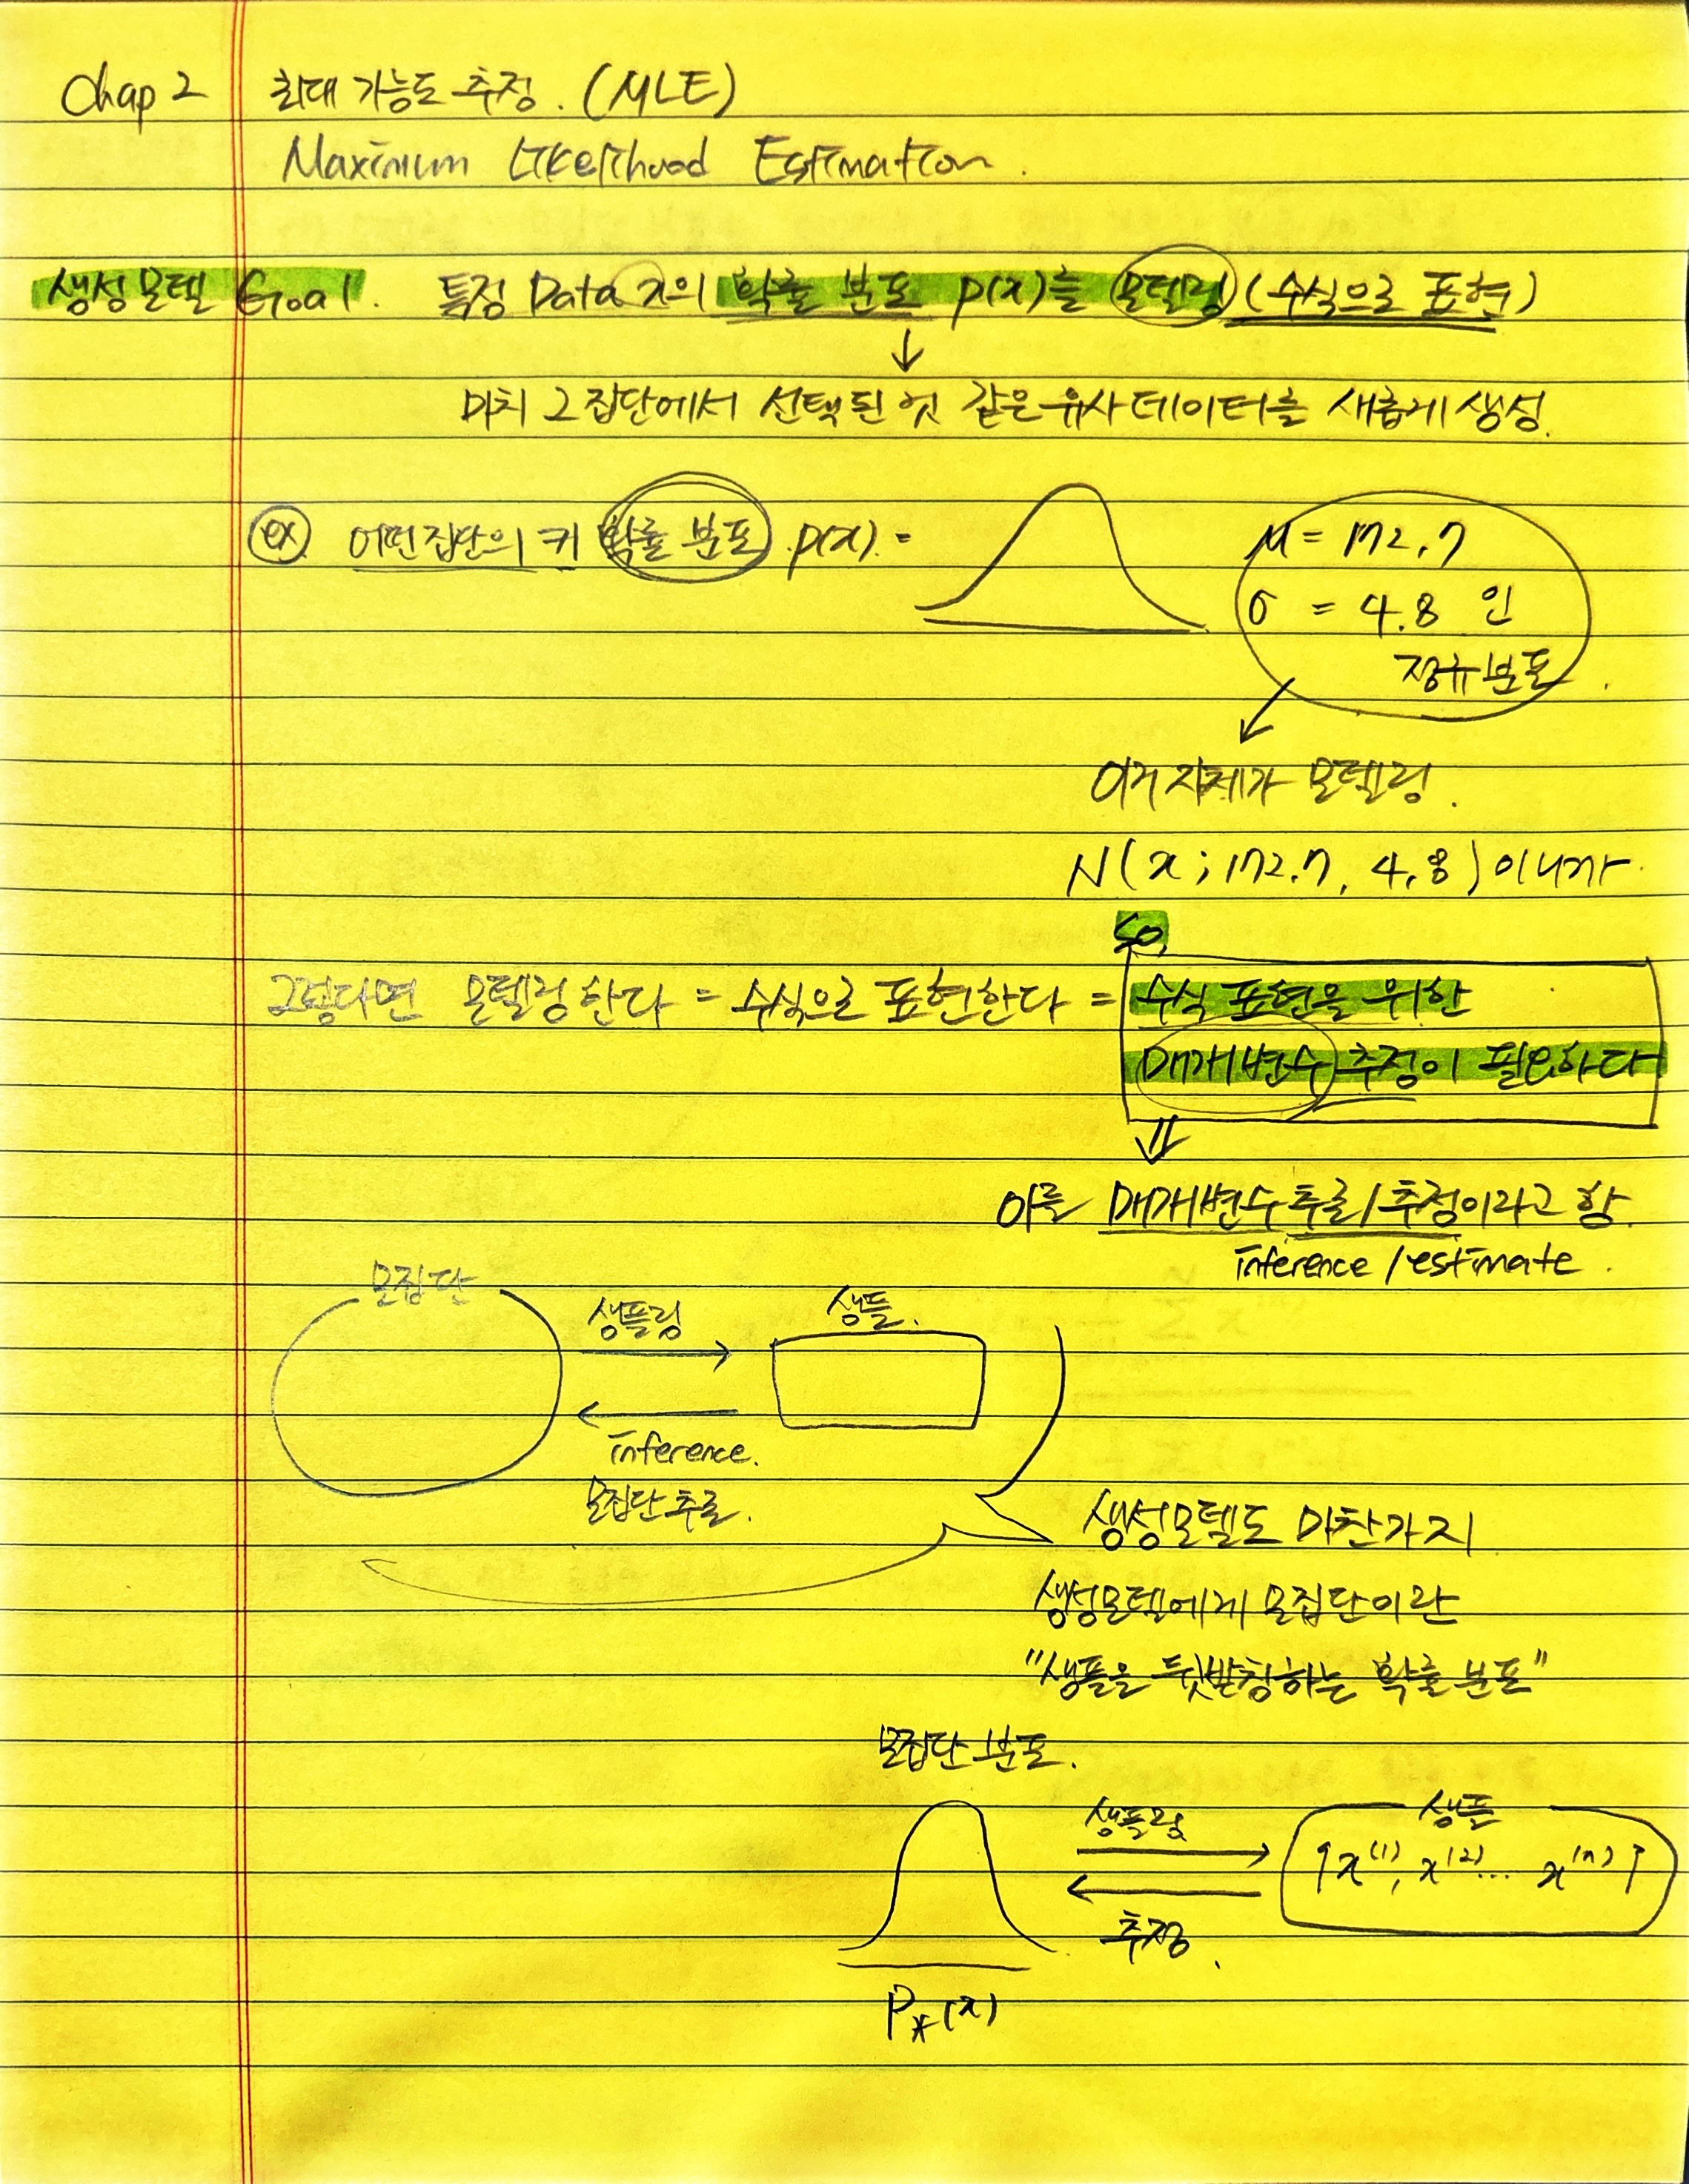 Chap 2 최대 가능도 추정. (MLE)
Maximum Likelihood Estimation.
생성모델 Goal. 특정 Data x의 확률 분포 p(x)를 모델링 (수식으로 표현)
↓
마치 그 집단에서 선택된 것 같은 유사 데이터를 새롭게 생성.
ex 어떤 집단의 키 확률 분포 p(x) =
μ = 172.7
σ = 4.8 인
정규분포.
이거 자체가 모델링.
N(x; 172.7, 4.8) 이니까
So,
그렇다면 모델링한다 = 수식으로 표현한다 = 수식 표현을 위한
매개변수 추정이 필요하다
⇓
이를 매개변수 추론/추정이라고 함.
inference / estimate.
모집단
샘플링 →
샘플.
← inference.
모집단 추론.
생성모델도 마찬가지
생성모델에게 모집단이란
"샘플을 뒷받침하는 확률 분포"
모집단 분포.
샘플링 →
샘플
{x⁽¹⁾, x⁽²⁾... x⁽ⁿ⁾}
← 추정.
P*(x)